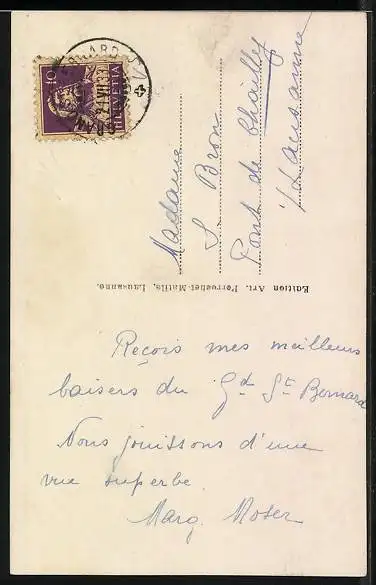 10
HELVETIA
Madame
S. Bron
Pont de Chailly
s/Lausanne
Edition Art. Perrochet-Matile, Lausanne.
Reçois mes meilleurs
baisers du Gd St Bernard
Nous jouissons d'une
vue superbe
Marg. Moser